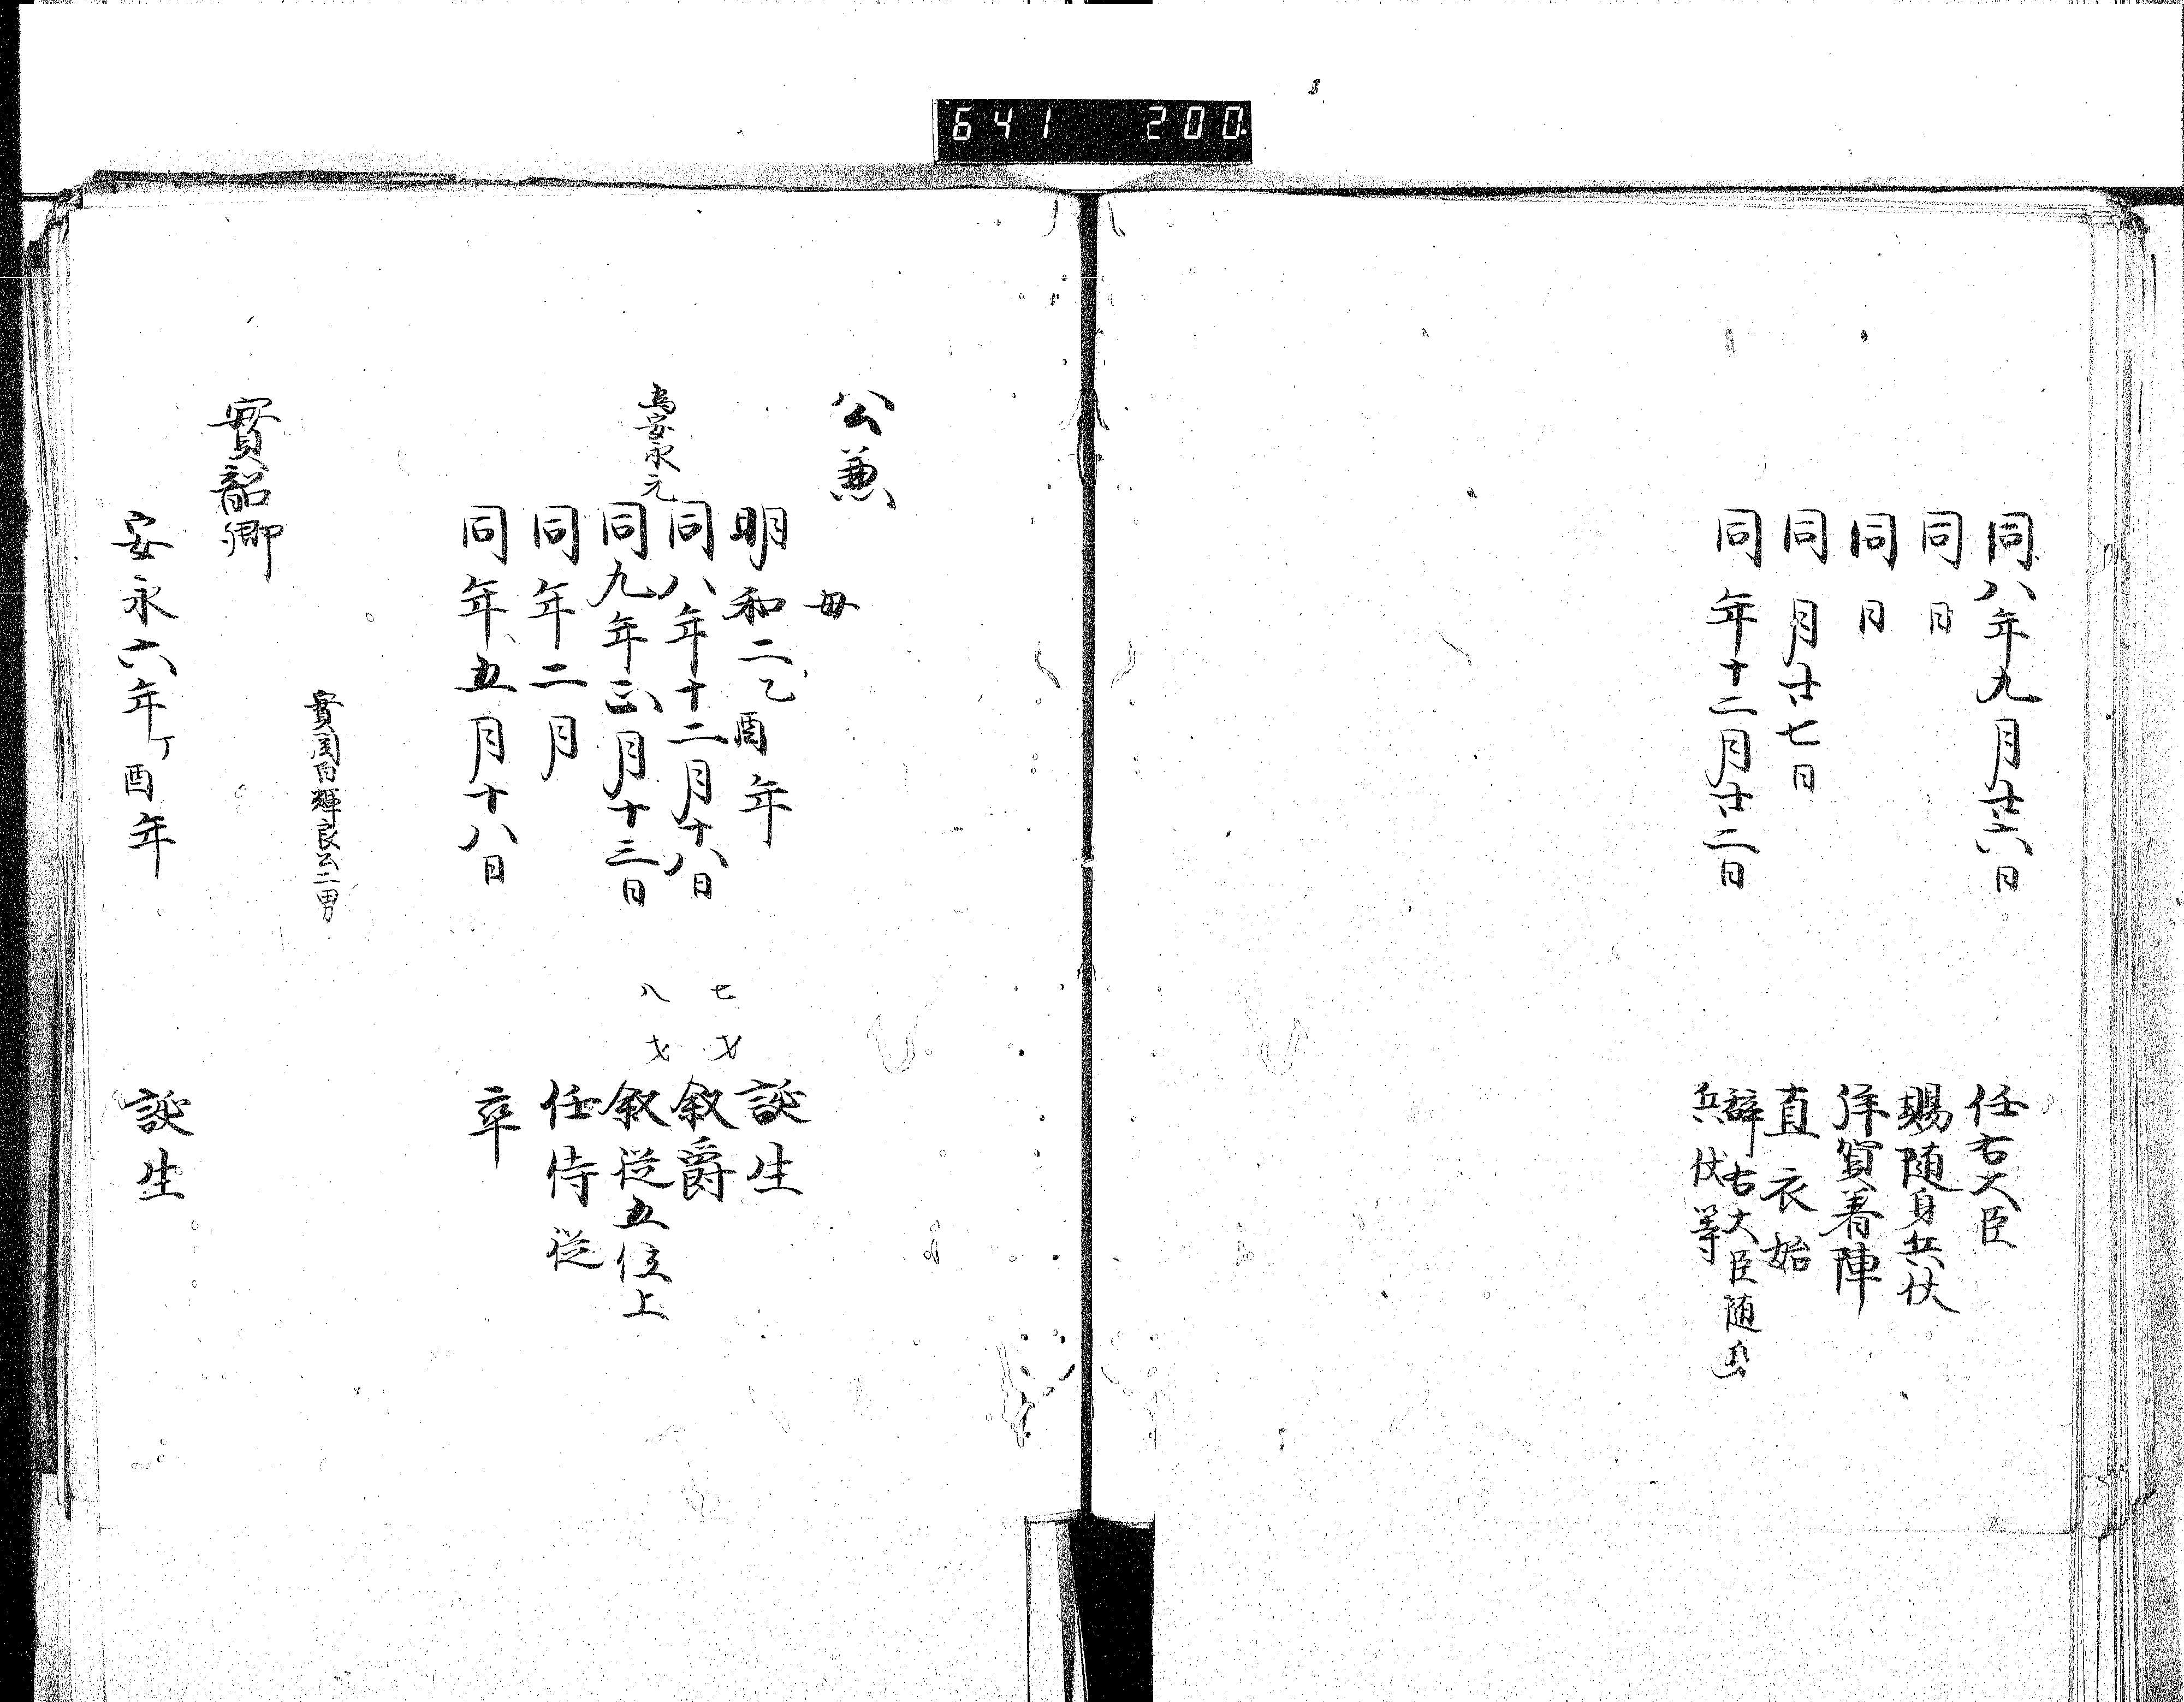 641 200
同八年九月廿六日 任右大臣
同日 賜随身兵仗
同日 拝賀着陣
同月廿七日 直衣始
同年十二月廿二日 辞右大臣随身
兵仗等
公兼
母
明和二乙酉年 誕生
同八年十二月十八日 七才 叙爵
為安永元
同九年正月十三日 八才 叙従五位上
同年二月 任侍従
同年五月十八日 卒
實関白輝良公二男
實韶卿
安永六年丁酉年 誕生